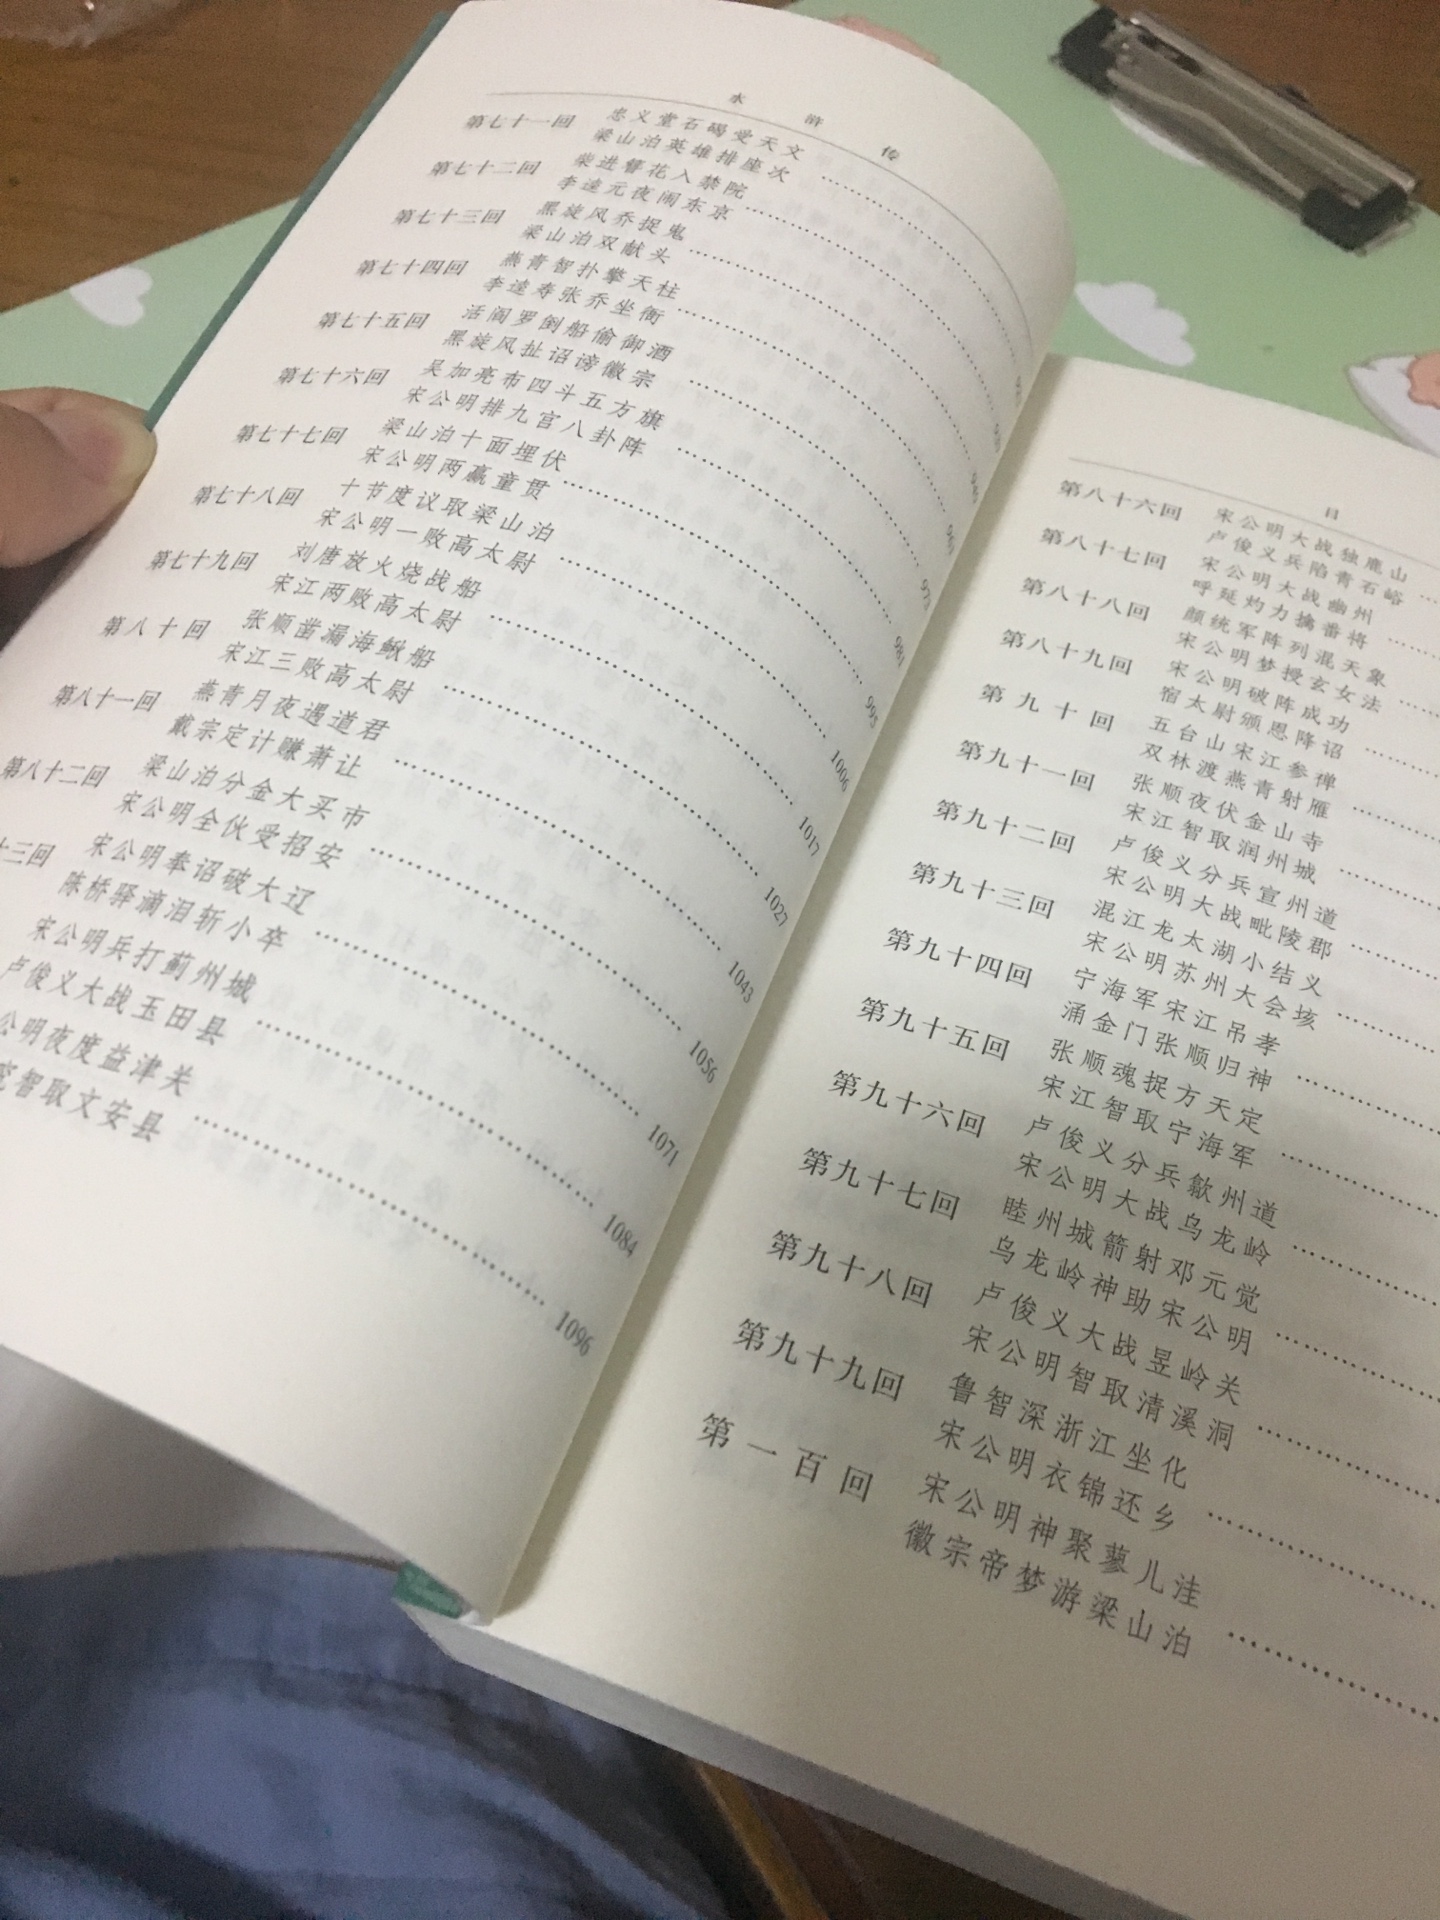 水浒传
第七十一回 忠义堂石碣受天文
梁山泊英雄排座次
第七十二回 柴进簪花入禁院
李逵元夜闹东京
第七十三回 黑旋风乔捉鬼
梁山泊双献头
第七十四回 燕青智扑擎天柱
李逵寿张乔坐衙
第七十五回 活阎罗倒船偷御酒
黑旋风扯诏谤徽宗
第七十六回 吴加亮布四斗五方旗
宋公明排九宫八卦阵
第七十七回 梁山泊十面埋伏
宋公明两赢童贯
第七十八回 十节度议取梁山泊
宋公明一败高太尉 995
第七十九回 刘唐放火烧战船
宋江两败高太尉 1006
第八十回 张顺凿漏海鳅船
宋江三败高太尉 1017
第八十一回 燕青月夜遇道君
戴宗定计赚萧让 1027
第八十二回 梁山泊分金大买市
宋公明全伙受招安 1043
十三回 宋公明奉诏破大辽
陈桥驿滴泪斩小卒 1056
宋公明兵打蓟州城 1071
卢俊义大战玉田县 1084
公明夜度益津关
智取文安县 1096
目
第八十六回 宋公明大战独鹿山
卢俊义兵陷青石峪
第八十七回 宋公明大战幽州
呼延灼力擒番将
第八十八回 颜统军阵列混天象
宋公明梦授玄女法
第八十九回 宋公明破阵成功
宿太尉颁恩降诏
第九十回 五台山宋江参禅
双林渡燕青射雁
第九十一回 张顺夜伏金山寺
宋江智取润州城
第九十二回 卢俊义分兵宣州道
宋公明大战毗陵郡
第九十三回 混江龙太湖小结义
宋公明苏州大会垓
第九十四回 宁海军宋江吊孝
涌金门张顺归神
第九十五回 张顺魂捉方天定
宋江智取宁海军
第九十六回 卢俊义分兵歙州道
宋公明大战乌龙岭
第九十七回 睦州城箭射邓元觉
乌龙岭神助宋公明
第九十八回 卢俊义大战昱岭关
宋公明智取清溪洞
第九十九回 鲁智深浙江坐化
宋公明衣锦还乡
第一百回 宋公明神聚蓼儿洼
徽宗帝梦游梁山泊